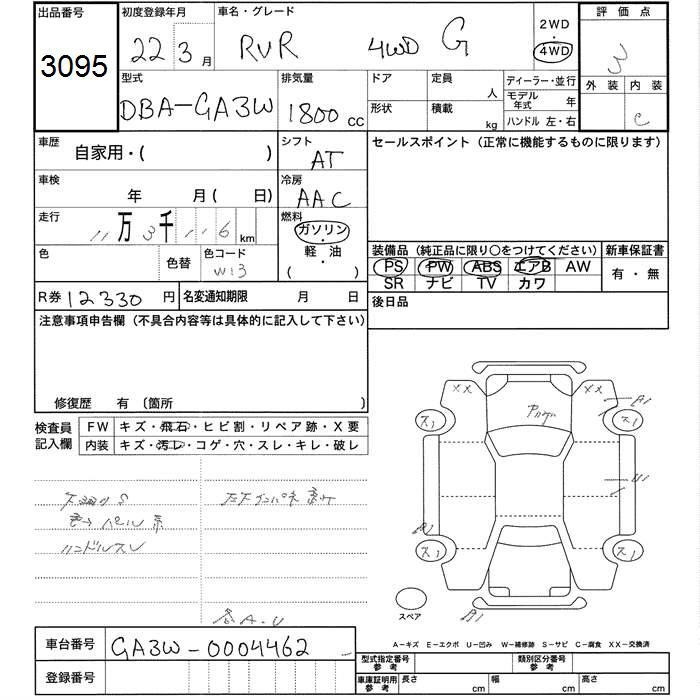 出品番号
3095
初度登録年月
22 3月
車名・グレード
RVR 4WD G
2WD
・
4WD
評価点
3
外装 内装
C
型式
DBA-GA3W
排気量
1800 cc
ドア
形状
定員
人
積載
kg
ディーラー・並行
モデル年式 年
ハンドル 左・右
車歴
自家用・( )
シフト
AT
セールスポイント(正常に機能するものに限ります)
車検
年 月( 日)
冷房
AAC
走行
11万3千116km
燃料
ガソリン
・
軽・油
( )
色
色替
色コード
W13
装備品(純正品に限り○をつけてください)
新車保証書
PS PW ABS エアB AW
SR ナビ TV カワ
有・無
R券 12330円
名変通知期限 月 日
後日品
注意事項申告欄(不具合内容等は具体的に記入して下さい)
修復歴 有 〔箇所 〕
検査員
記入欄
FW キズ・飛石・ヒビ割・リペア跡・X要
内装 キズ・汚レ・コゲ・穴・スレ・キレ・破レ
ハンドルスレ
XX XX
A1
ス1 ス1
U1
A1
ス1 ス1
A1
スペア
A・U
A-キズ E-エクボ U-凹み W-補修跡 S-サビ C-腐食 XX-交換済
車台番号 GA3W-0004462
登録番号
型式指定番号
参考
類別区分番号
参考
車庫証明用
参考
長さ cm 幅 cm 高さ cm